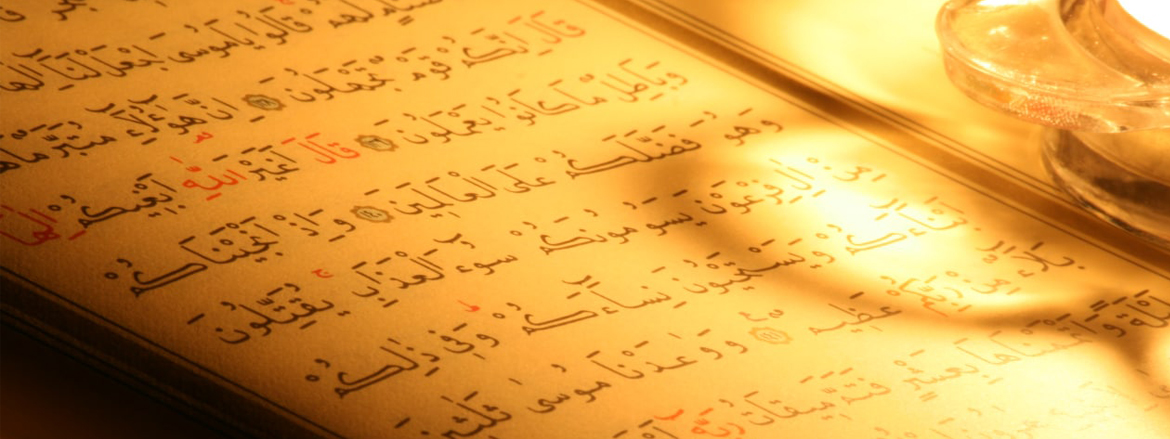 لَهُمْ قَالُوا يَامُوسَى اجْعَل لَّنَا إِلَٰهًا
قَالَ إِنَّكُمْ قَوْمٌ تَجْهَلُونَ ۝ إِنَّ هَٰؤُلَاءِ مُتَبَّرٌ مَّا
وَبَاطِلٌ مَّا كَانُوا يَعْمَلُونَ ۝ قَالَ أَغَيْرَ اللَّهِ أَبْغِيكُمْ إِلَٰهًا
وَهُوَ فَضَّلَكُمْ عَلَى الْعَالَمِينَ ۝ وَإِذْ أَنجَيْنَاكُمْ
مِنْ آلِ فِرْعَوْنَ يَسُومُونَكُمْ سُوءَ الْعَذَابِ يُقَتِّلُونَ
أَبْنَاءَكُمْ وَيَسْتَحْيُونَ نِسَاءَكُمْ وَفِي ذَٰلِكُمْ
بَلَاءٌ مِّن رَّبِّكُمْ عَظِيمٌ ۝ وَوَاعَدْنَا مُوسَى ثَلَاثِينَ
لَيْلَةً وَأَتْمَمْنَاهَا بِعَشْرٍ فَتَمَّ مِيقَاتُ رَبِّهِ